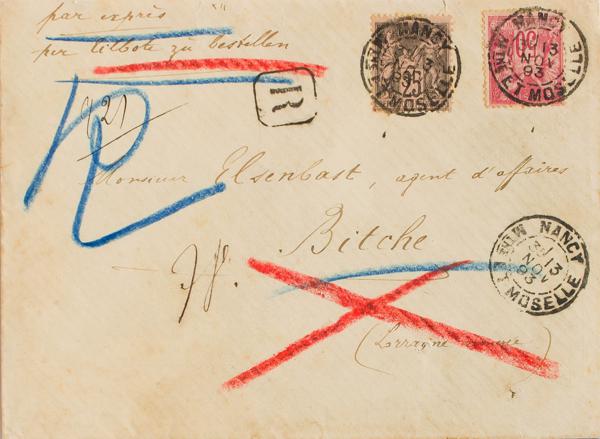 par exprès
per Eilbote zu bestellen
R
921
R
Monsieur Elsenbast, agent d'affaires
Bitche
(Lorraine
25
50
NANCY
13
NOV
93
MOSELLE
NANCY
13
NOV
93
MOSELLE
NANCY
13
NOV
93
MOSELLE